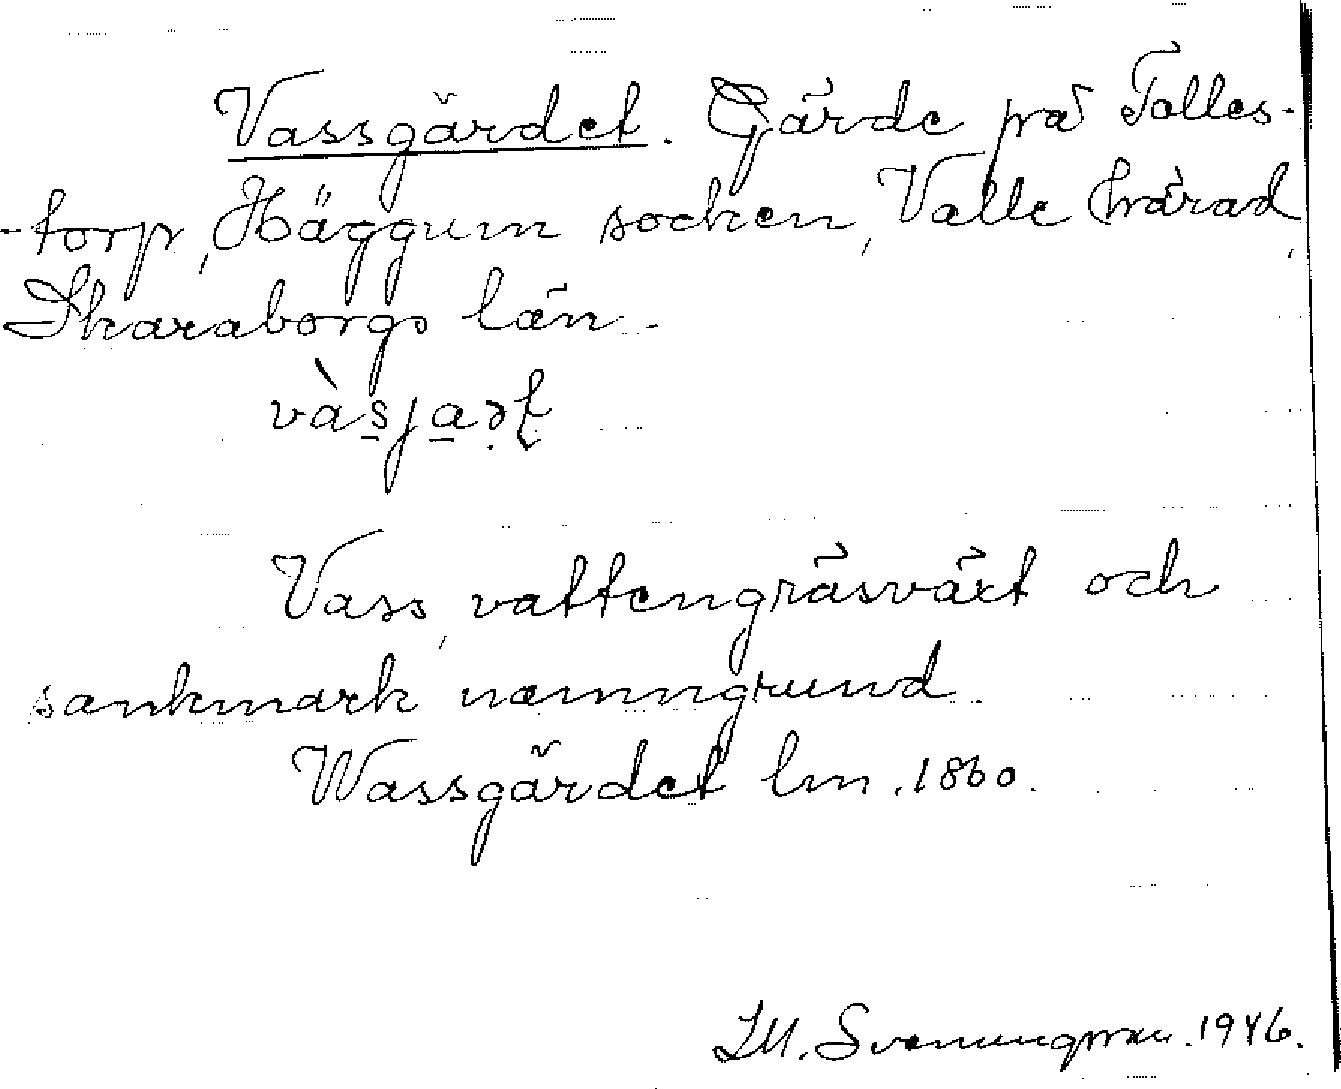 Vassgärdet. Gärde på Tolles-
-torp, Häggum socken, Valle härad,
Skaraborgs län.
Vass, vattengräsväxt och
sankmark namngrund.
Wassgärdet lm. 1860.
J.M. Svenungsson. 1946.